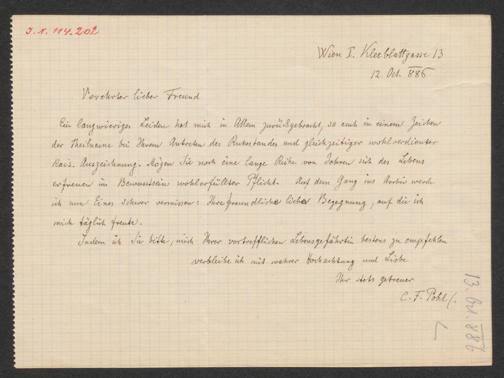 J. N. 114.202
Wien I. Kleeblattgasse 13
12 Oct. 886
Verehrter lieber Freund
Ein langwieriges Leiden hat mich in Allem zurückgebracht, so auch in einem Zeichen
der Theilname bei Ihrem Antreten des Ruhestandes und gleichzeitiger wohlverdienter
kais. Auszeichnung. Mögen Sie noch eine lange Reihe von Jahren sich des Lebens
erfreuen im Bewusstsein wohlerfüllter Pflicht. Auf dem Gang ins Archiv werde
ich nun Eines schwer vermissen: Ihre freundliche lieber Begegnung, auf die ich
mich täglich freute.
Indem ich Sie bitte, mich Ihrer vortrefflichen Lebensgefährtin bestens zu empfehlen
verbleibe ich mit wahrer Hochachtung und Liebe
Ihr stets getreuer
C. F. Pohl
13. Oct. 886